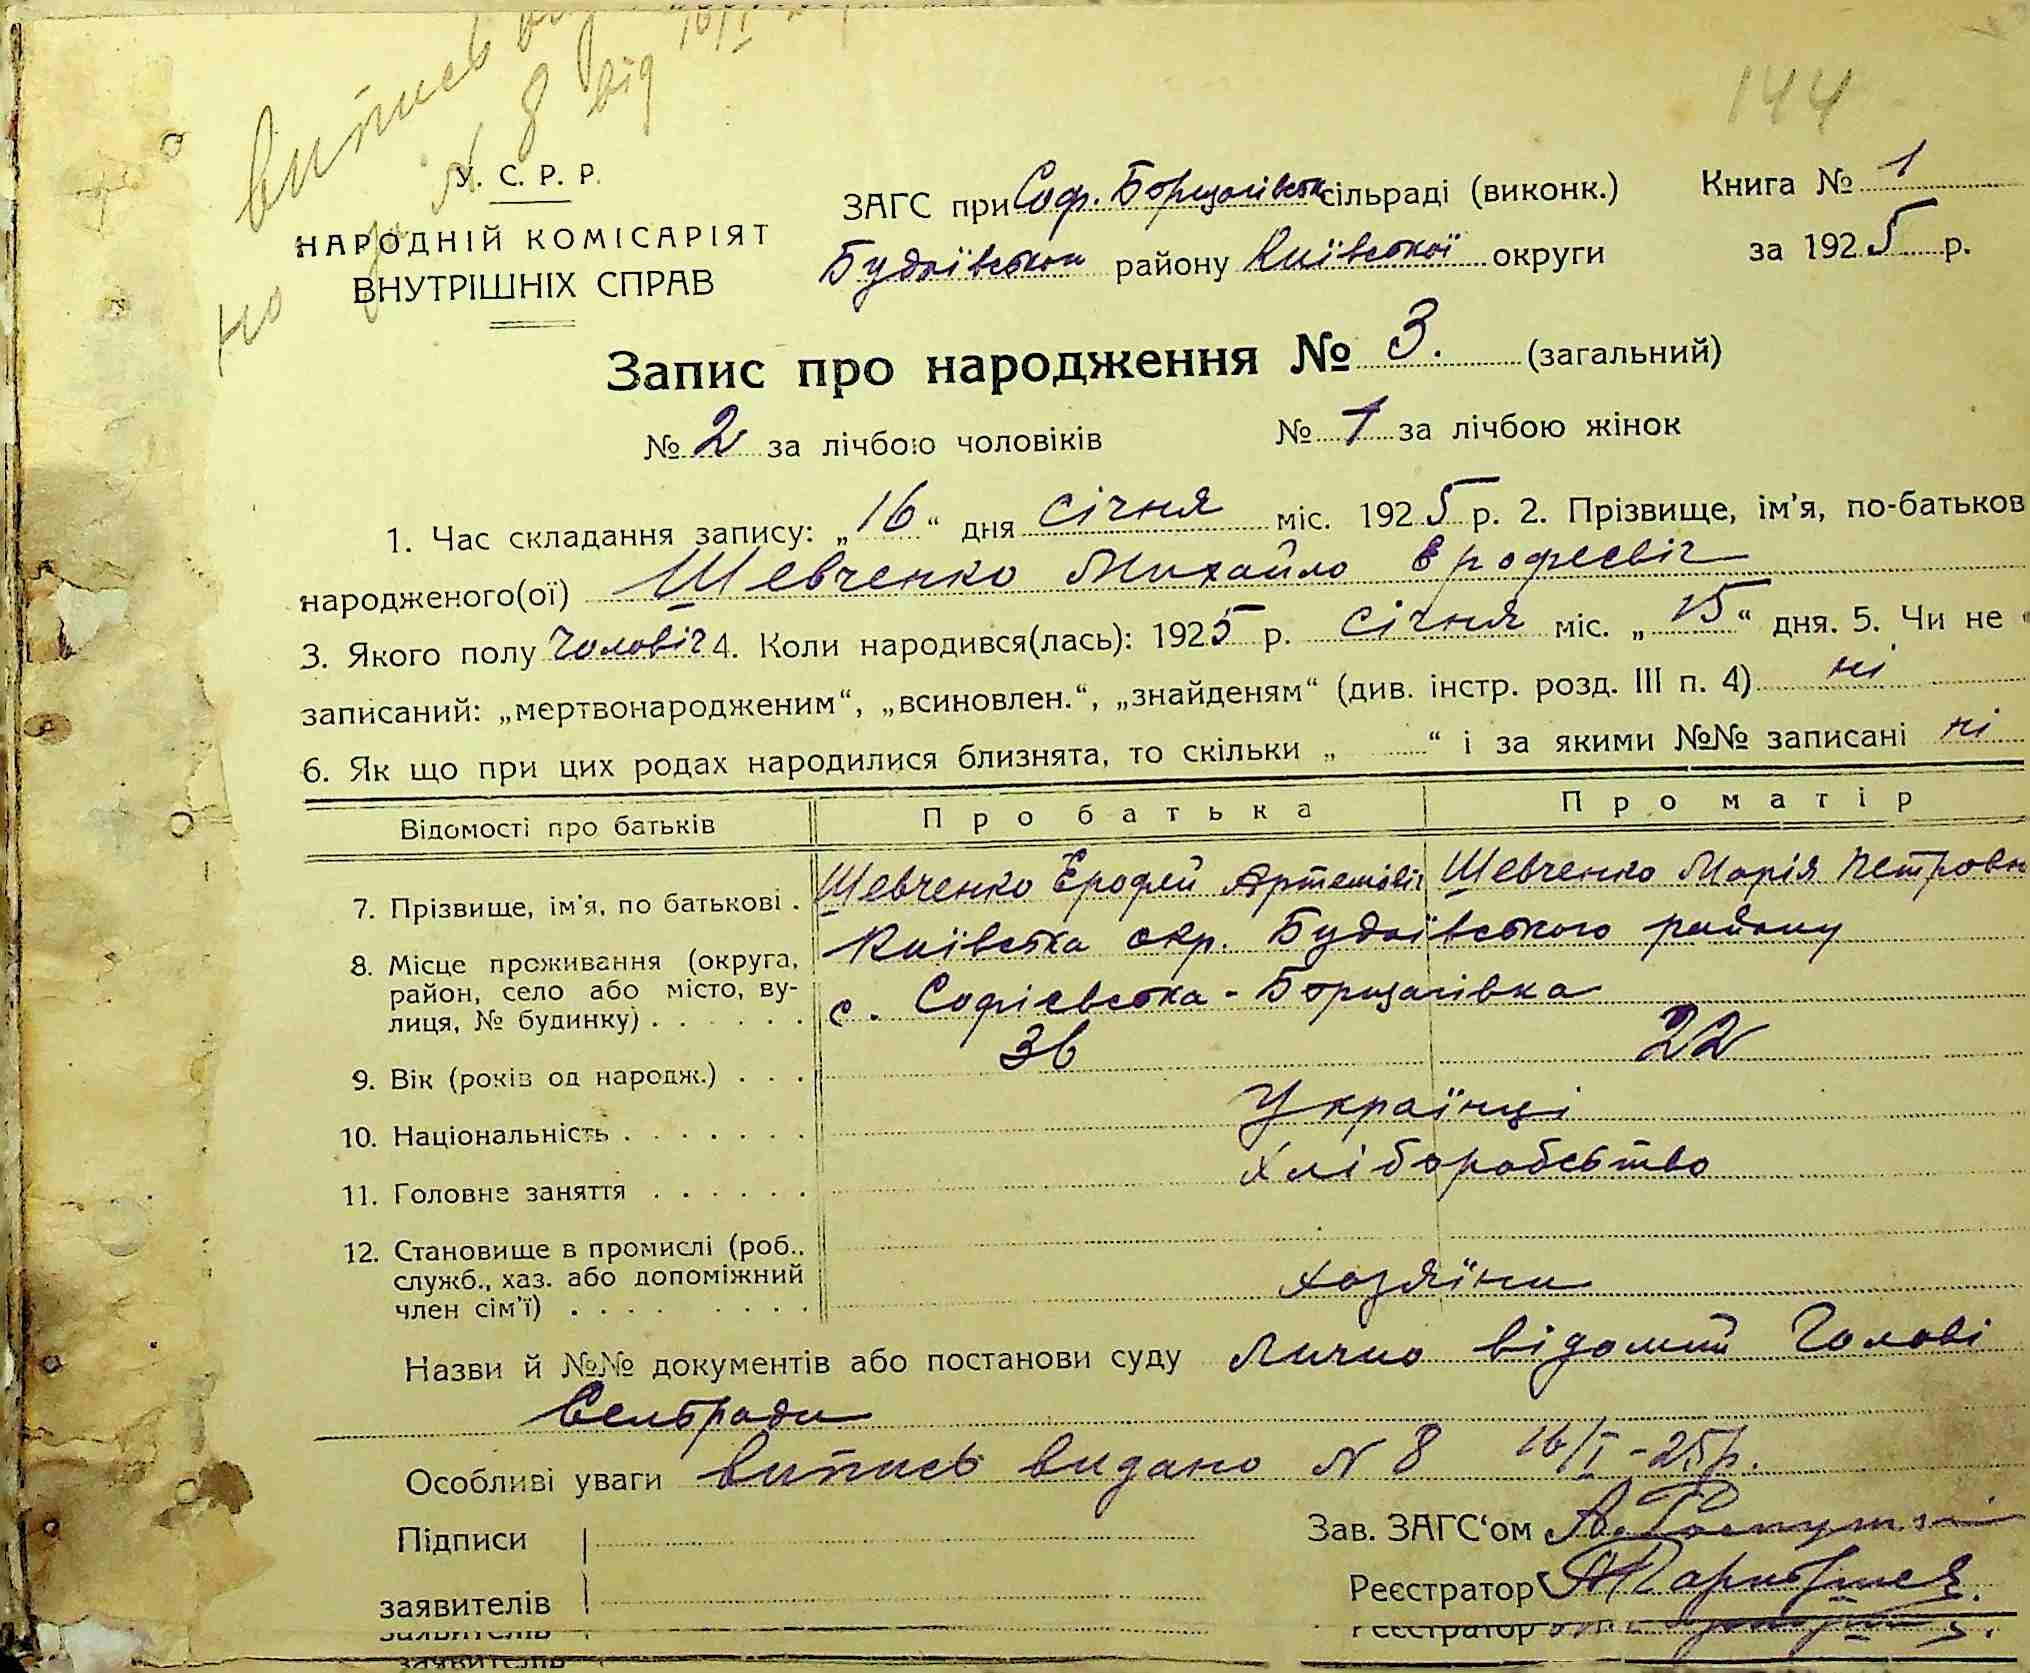 144
випись
N 8 від
У. С. Р. Р.
НАРОДНІЙ КОМІСАРІЯТ
ВНУТРІШНІХ СПРАВ
ЗАГС при Соф. Борщагівськ сільраді (виконк.)
Будаївськои району Київської округи
Книга № 1
за 1925 р.
Запис про народження № 3. (загальний)
№ 2 за лічбою чоловіків № 1 за лічбою жінок
1. Час складання запису: „16“ дня січня міс. 1925 р. 2. Прізвище, ім'я, по-батьков
народженого(ої) Шевченко Михайло Ерофеєвіч
3. Якого полу чоловіч 4. Коли народився(лась): 1925 р. січня міс. „15“ дня. 5. Чи не
записаний: „мертвонародженим“, „всиновлен.“, „знайденям“ (див. інстр. розд. III п. 4) ні
6. Як що при цих родах народилися близнята, то скільки „ “ і за якими №№ записані ні
Відомості про батьків Про батька Про матір
7. Прізвище, ім'я, по батькові . Шевченко Ерофей Артемовіч Шевченко Марія Петровн
8. Місце проживання (округа, район, село або місто, вулиця, № будинку) . . . . . . Київська окр. Будаївського району
с. Софієвська-Борщагівка
9. Вік (років од народж.) . . . 36 22
10. Національність . . . . . . . Українці
11. Головне заняття . . . . . . Хліборобство
12. Становище в промислі (роб., служб., хаз. або допоміжний член сім'ї) . . . . . . . . . хозяїни
Назви й №№ документів або постанови суду Лично відомий Голові
Сельради
Особливі уваги випись видано N 8 16/I-25р.
Підписи
заявителів
Зав. ЗАГС'ом
Реєстратор
заявителів
Реєстратор
заявителів